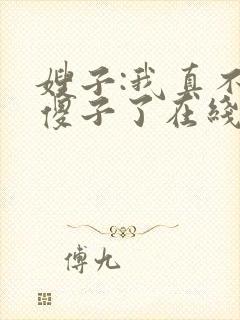 嫂子:我真不
傻子了在线
傅九